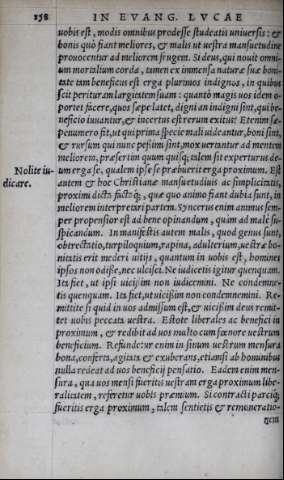 158 IN EVANG. LVCAE
uobis est, modis omnibus prodesse studeatis uniuersis: &
bonis quò fiant meliores, & malis ut uestra mansuetudine
prouocentur ad meliorem frugem. Si deus, qui nouit omni-
um mortalium corda, tamen ex immensa naturæ suæ boni-
tate tam beneficus est erga plurimos indignos, in quibus
scit perituram largitatem suam: quantò magis uos idem o-
portet facere, quos sæpe latet, digni an indigni sint, qui be-
neficio iuuantur, & incertus est rerum exitus? Etenim sæ-
penumero fit, ut qui prima specie mali uideantur, boni sint,
& rursum qui nunc pessimi sint, mox uertantur ad mentem
meliorem, præsertim quum quisq; talem sit experturus de-
Nolite iu- um erga se, qualem ipse se præbuerit erga proximum. Est
dicare. autem & hoc Christianæ mansuetudinis ac simplicitatis,
proximi dicta factaq;, quæ quo animo fiant dubia sunt, in
meliorem interpretari partem. Syncerus enim animus sem-
per propensior est ad bene opinandum, quàm ad malè su-
spicandum. In manifestis autem malis, quod genus sunt,
obtrectatio, turpiloquium, rapina, adulterium, uestræ bo-
nitatis erit mederi uitijs, quantum in uobis est, homines
ipsos non odisse, nec ulcisci. Ne iudicetis igitur quenquam.
Ita fiet, ut ipsi uicissim non iudicemini. Ne condemne-
tis quenquam. Ita fiet, ut uicissim non condemnemini. Re-
mittite si quid in uos admissum est, & uicissim deus remit-
tet uobis peccata uestra. Estote liberales ac benefici in
proximum, & redibit ad uos multo cum fœnore uestrum
beneficium. Refundetur enim in sinum uestrum mensura
bona, conferta, agitata & exuberans, etiamsi ab hominibus
nulla redeat ad uos beneficij pensatio. Eadem enim men-
sura, qua uos mensi fueritis uestram erga proximum libe-
ralitatem, referetur uobis præmium. Si contracti parciq;
fueritis erga proximum, talem sentietis & remuneratio-
nem